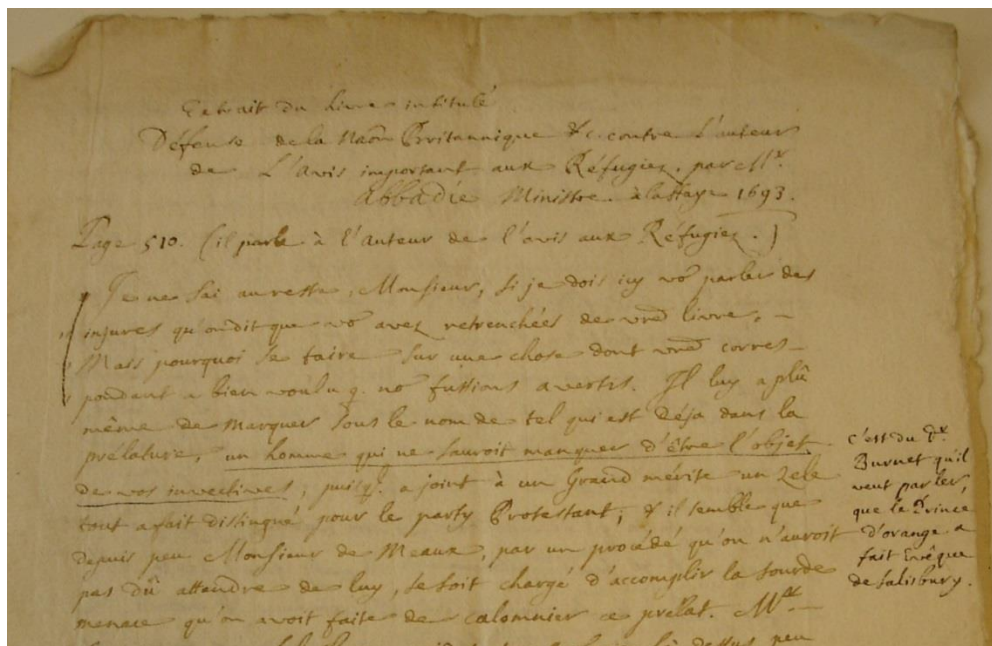 Extrait du Livre intitulé
Défense de la Naõn Britannique &c. contre L'auteur
de L'Avis important aux Réfugiez. par Mr.
Abbadie Ministre. à la Haye 1693.
Page 510. (il parle à l'Auteur de l'avis aux Réfugiez.)
Je ne sai au reste, Monsieur, si je dois icy vo9 parler des
injures qu'on dit que vo9 avez retrenchées de vrẽ livre,
Mais pourquoi se taire sur une chose dont vrẽ corres-
pondant a bien voulu q. no9 fussions avertis. Il luy a plû
même de Marquer sous le nom de tel qui est déja dans la
prélature, un homme qui ne sauroit manquer d'être l'objet
de vos invectives, puisq. a joint à un Grand mérite un Zele
tout a fait distingué pour le party Protestant; & il semble que
depuis peu Monsieur de Meaux, par un procédé qu'on n'auroit
pas dû attendre de luy, se soit chargé d'accomplir la sourde
menace qu'on avoit faite de calomnier ce prélat. Mr.
là dessus peu
c'est du Dr.
Burnet qu'il
veut parler,
que le Prince
d'orange a
fait Evêque
de Salisbury.